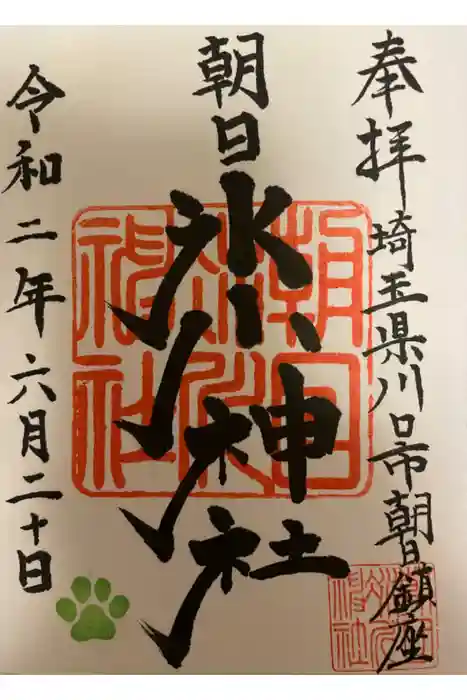 奉拝 埼玉県川口市朝日鎮座
朝日氷川神社
令和二年六月二十日
朝日
氷川
神社